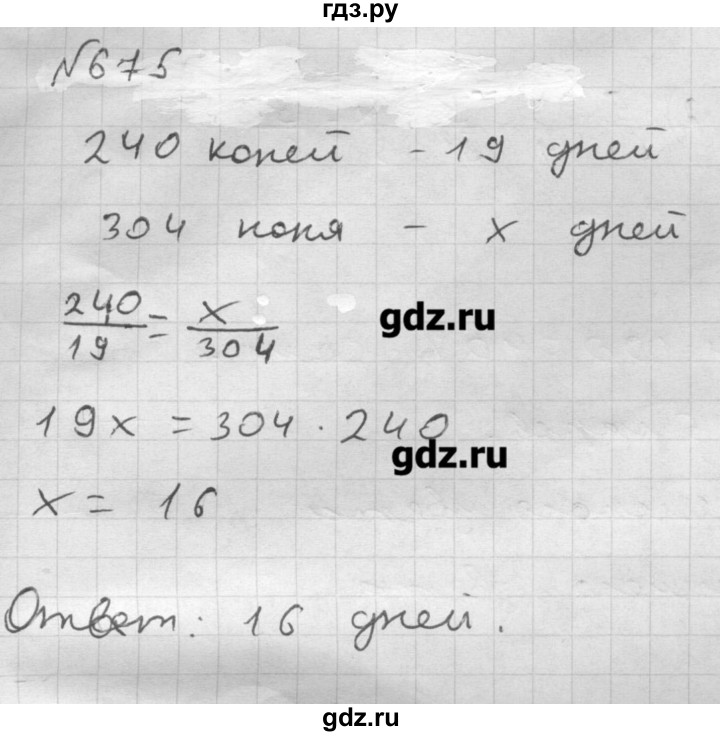 гдз.ру
№675
240 коней - 19 дней
304 коня - x дней
240/19 = x/304
gdz.ru
19x = 304 · 240
gdz.ru
x = 16
Ответ: 16 дней.
gdz.ru